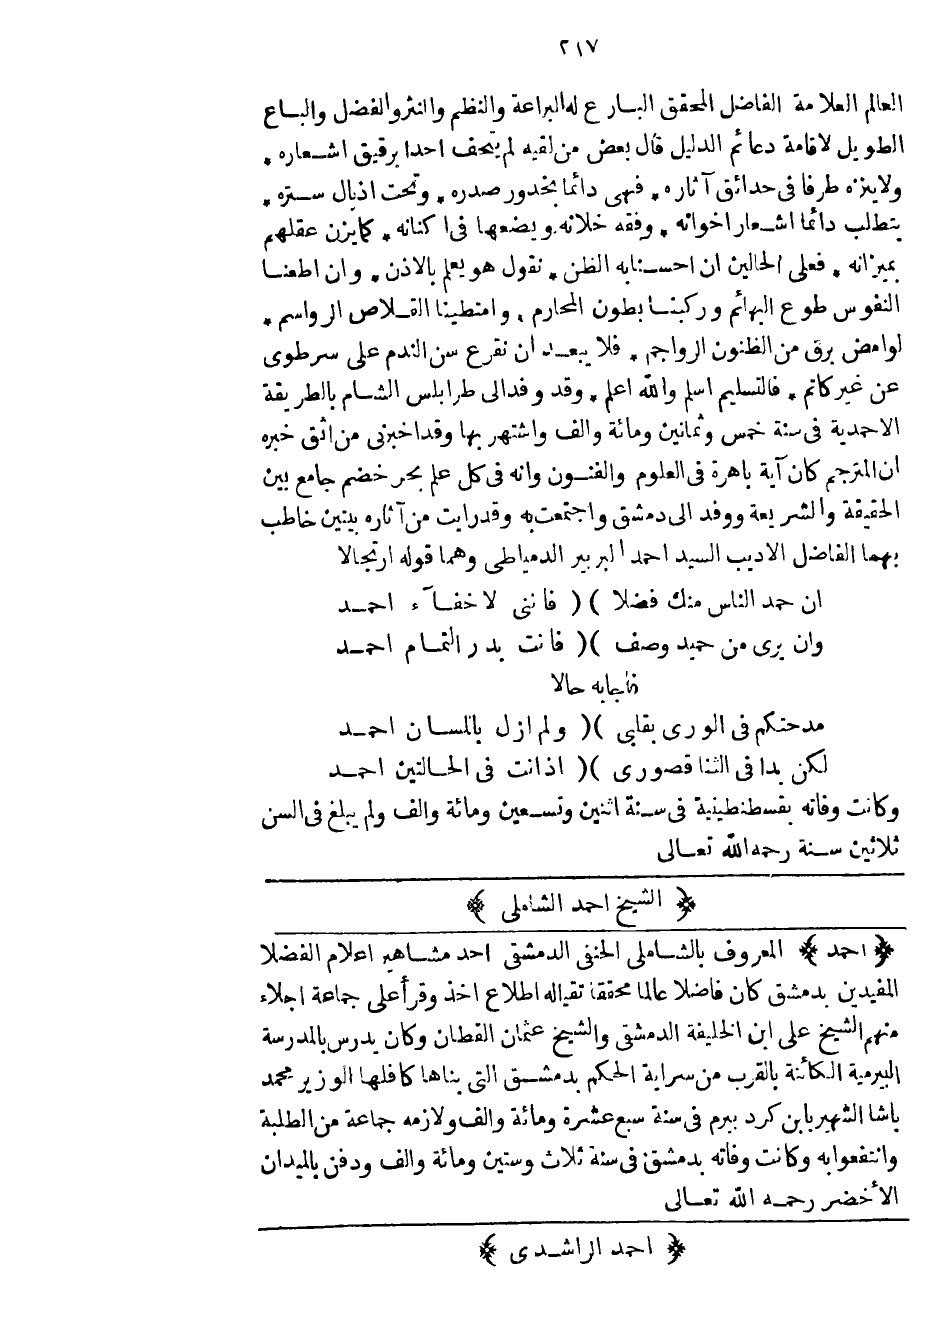 ٢١٧
العالم العلامة الفاضل المحقق البارع له البراعة والنظم والنثر والفضل والباع
الطويل لاقامة دعائم الدليل قال بعض من لقيه لم يتحف احدا برقيق اشعاره *
ولا ينزه طرفا فى حدائق آثاره * فهى دائما بخدور صدره * وتحت اذيال ستره *
يتطلب دائما اشعار اخوانه * وفقه خلانه ويضعها فى اكنانه * كما يزن عقلهم
بميزانه * فعلى الحالين ان احسنا به الظن * نقول هو يعلم بالاذن * وان اطعنا
النفوس طوع البهائم وركبنا بطون المحارم * وامتطينا القلاص الرواسم *
لوامض برق من الظنون الرواجم * فلا يبعد ان نقرع سن الندم على سر طوى
عن غير كاتم * فالتسليم اسلم والله اعلم * وقد وفد الى طرابلس الشام بالطريقة
الاحمدية فى سنة خمس وثمانين ومائة والف واشتهر بها وقد اخبرنى من اثق خبره
ان المترجم كان آية باهرة فى العلوم والفنون وانه فى كل علم بحر خضم جامع بين
الحقيقة والشريعة ووفد الى دمشق واجتمعت به وقد رايت من آثاره بيتين خاطب
بهما الفاضل الاديب السيد احمد البربير الدمياطى وهما قوله ارتجالا
ان حمد الناس منك فضلا )( فاننى لا خفآء احمد
وان يرى من حميد وصف )( فانت بدر التمام احمد
فاجابه حالا
مدحتكم فى الورى بقلبى )( ولم ازل باللسان احمد
لكن بدا فى الثنا قصورى )( اذ انت فى الحالتين احمد
وكانت وفاته بقسطنطينية فى سنة اثنين وتسعين ومائة والف ولم يبلغ فى السن
ثلاثين سنة رحمه الله تعالى
﴿ الشيخ احمد الشاملى ﴾
﴿ احمد ﴾ المعروف بالشاملى الحنفى الدمشقى احد مشاهير اعلام الفضلا
المفيدين بدمشق كان فاضلا عالما محققا تقيا له اطلاع اخذ وقرأ على جماعة اجلاء
منهم الشيخ على ابن الخليفة الدمشقى والشيخ عثمان القطان وكان يدرس بالمدرسة
البيرمية الكائنة بالقرب من سراية الحكم بدمشق التى بناها كافلها الوزير محمد
باشا الشهير بابن كرد بيرم فى سنة سبع عشرة ومائة والف ولازمه جماعة من الطلبة
وانتفعوا به وكانت وفاته بدمشق فى سنة ثلاث وستين ومائة والف ودفن بالميدان
الأخضر رحمه الله تعالى
﴿ احمد الراشدى ﴾